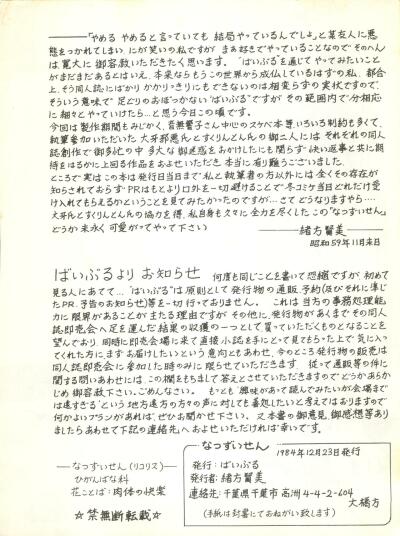 「やめる やめると言っていても 結局やっているんでしょ」と某友人に悪
態をつかれてしまい、にが笑いの私ですが まあ好きでやっていることなので そのへん
は寛大に 御容赦いただきたく思います。 "ばいぶる"を通じて やってみたいこと
がまだまだあるとはいえ、本来ならもうこの世界から成仏しているはずの私、都合
上、そう同人誌にばかり かかりっきりにもできないのは相変らずの実状ですので、
そういう意味で 足どりのおぼつかない"ばいぶる"ですが その範囲内で分相応
に 細々とやっていけたら…と思う今日この頃です。
今回は製作期間もみじかく、音無響子さん中心のスケベ本等いろいろ制約も多くて、
執筆参加いただいた 大牙邪悪氏とすくりんとん氏の御二人には それぞれの同人
誌創作で御多忙の中 多大な御迷惑をおかけしたにも関らず 快い返事と共に期
待をはるかに上回る作品をおよせいただき 本当に有り難うございました。
ところで実は この本は発行日当日まで 私と執筆者の方以外には 全くその存在が
知られておらず PRはもとより口外を一切避けることで 冬コミケ当日どれだけ受
け入れてもらえるかということを見てみたかったのですが…さて どうなりますやら‥‥
大牙氏とすくりんとん氏の協力を得、私自身も久々に 全力を尽くした、この「なつずいせん」
どうか 末永く 可愛がってやって下さい
――緒方賢美
昭和59年11月末日
ばいぶるより お知らせ
何度も同じことを書いて恐縮ですが、初めて
見る人にあてて…"ばいぶる"は原則として 発行物の通販、予約(及びそれに準じ
たPR、予告のお知らせ)等を一切 行っておりません。 これは当方の事務処理能
力に限界があることが主たる理由ですが その他に、発行物があくまでその同人
誌即売会へ足を運んだ結果の収穫の一つとして買っていただくものとなることを
望んでおり、同時に即売会場に来て直接小誌を手にとって見てもらった上で 気に入っ
てくれた方にまずお届けしたいという意向ともあわせ、今のところ発行物の販売は
同人誌即売会に参加した時のみに限らせていただきます 従って通販等の件に
関する問いあわせには、この欄をもちまして答えとさせていただきますのでどうかあらか
じめ御容赦下さい。ごめんなさい。 もっとも"興味があって読んでみたいが会場まで
は遠すぎる"という地方遠方の方々の声に対しても善処したいと考えてはおりますので
何かよいプランがあれば、ぜひお聞かせ下さい。 又 本書の御意見、御感想等あり
ましたらあわせて 下記の連絡先へ およせいただければ 幸いです。
――なつずいせん(リコリス)――
ひがんばな科
花ことば:肉体の快楽
☆禁無断転載☆
なつずいせん
1984年12月23日発行
発行:ばいぶる
発行者:緒方賢美
連絡先:千葉県千葉市 高洲 4-4-2-604
大橋方
(手紙は封書にておねがい致します)